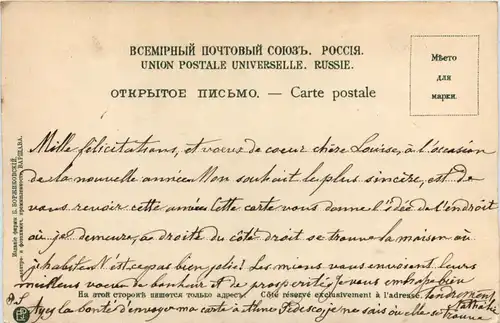 ВСЕМІРНЫЙ ПОЧТОВЫЙ СОЮЗЪ. РОССІЯ.
UNION POSTALE UNIVERSELLE. RUSSIE.
ОТКРЫТОЕ ПИСЬМО. — Carte postale
Мѣсто
для
марки.
Mille félicitations, et voeux de coeur chère Louise, à l'occasion
de la nouvelle année. Mon souhait le plus sincère, est de
vous revoir cette année. Cette carte vous donne l'idée de l'endroit
où je demeure, à droite du côté droit se trouve la maison où
j'habite. N'est ce pas bien jolie? Les miens vous envoient leurs
meilleurs voeux de bonheur et de prospérité. Je vous embrasse bien
На этой сторонѣ пишется только адресъ. Côté réservé exclusivement à l'adresse.
tendrement
P.S. Ayez la bonté d'envoyer ma carte à Mme je ne sais où elle se trouve.
Изданіе фирмы Б. ВЕРЖБИЦКІЙ, ВАРШАВА.